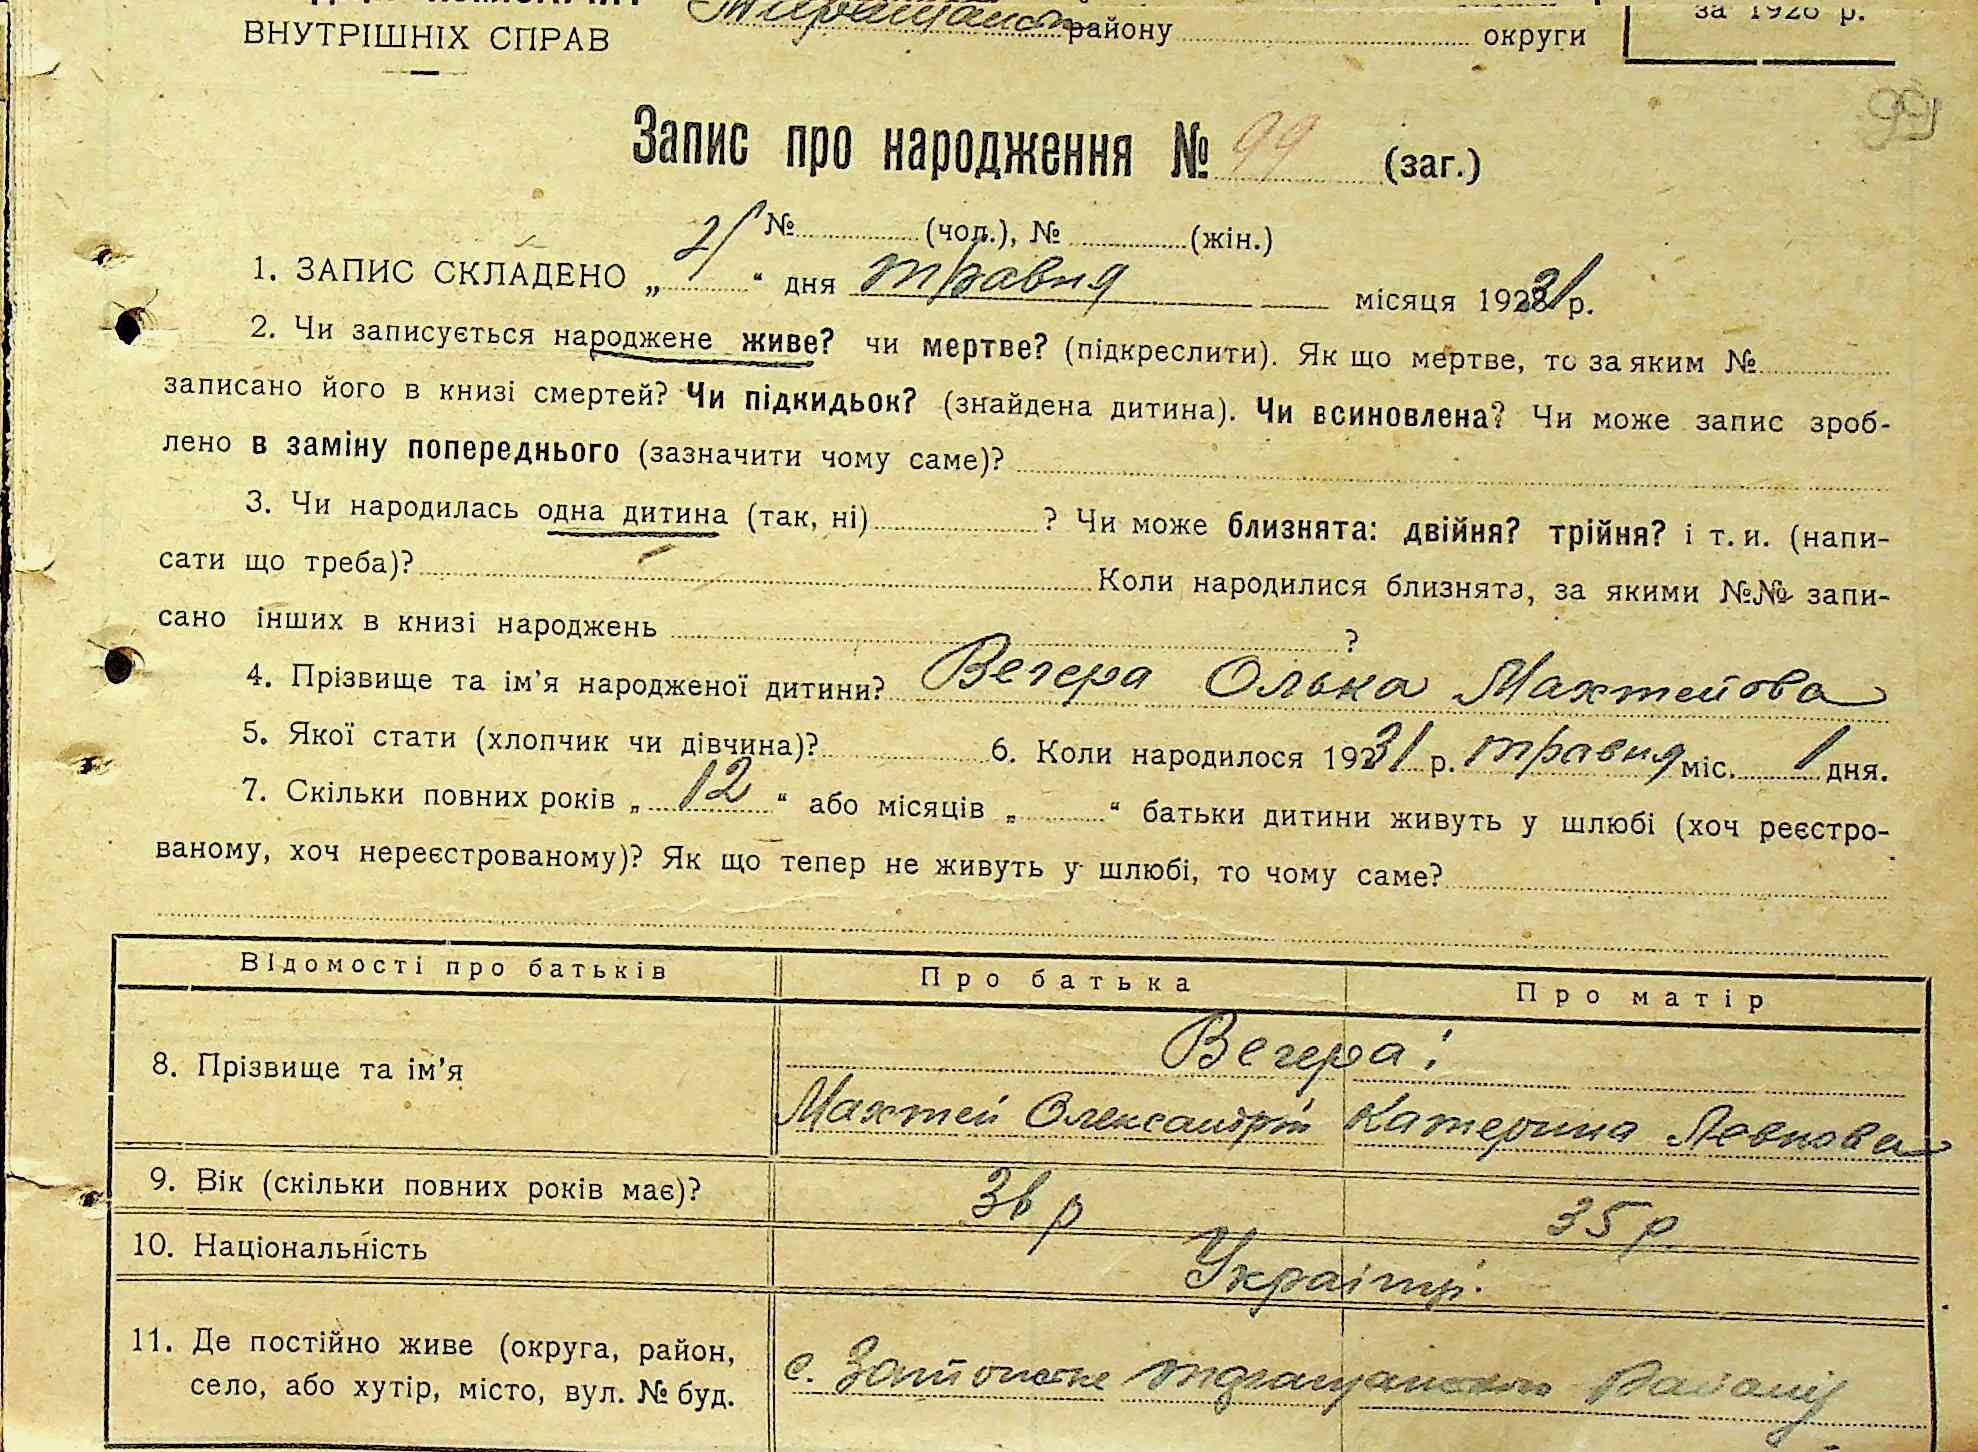 ВНУТРІШНІХ СПРАВ
Таращанськ району округи
за 1928 р.
99
Запис про народження № 99 (заг.)
№ (чол.), № (жін.)
1. ЗАПИС СКЛАДЕНО „ 21 “ дня травня місяця 1931 р.
2. Чи записується народжене живе? чи мертве? (підкреслити). Як що мертве, то за яким №
записано його в книзі смертей? Чи підкидьок? (знайдена дитина). Чи всиновлена? Чи може запис зроб-
лено в заміну попереднього (зазначити чому саме)?
3. Чи народилась одна дитина (так, ні) ? Чи може близнята: двійня? трійня? і т. и. (напи-
сати що треба)? Коли народилися близнята, за якими №№ запи-
сано інших в книзі народжень ?
4. Прізвище та ім’я народженої дитини? Вегера Олька Махтейова
5. Якої стати (хлопчик чи дівчина)? 6. Коли народилося 1931 р. травня міс. 1 дня.
7. Скільки повних років „ 12 “ або місяців „ “ батьки дитини живуть у шлюбі (хоч реєстро-
ваному, хоч нереєстрованому)? Як що тепер не живуть у шлюбі, то чому саме?
Відомості про батьків Про батька Про матір
8. Прізвище та ім’я Вегера:
Махтей Олександрів Катерина Левкова
9. Вік (скільки повних років має)? 36 р 35 р
10. Національність Українці.
11. Де постійно живе (округа, район,
село, або хутір, місто, вул. № буд.
с. Таращанського Району